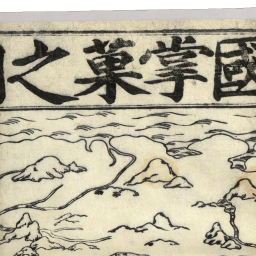 國掌菓之